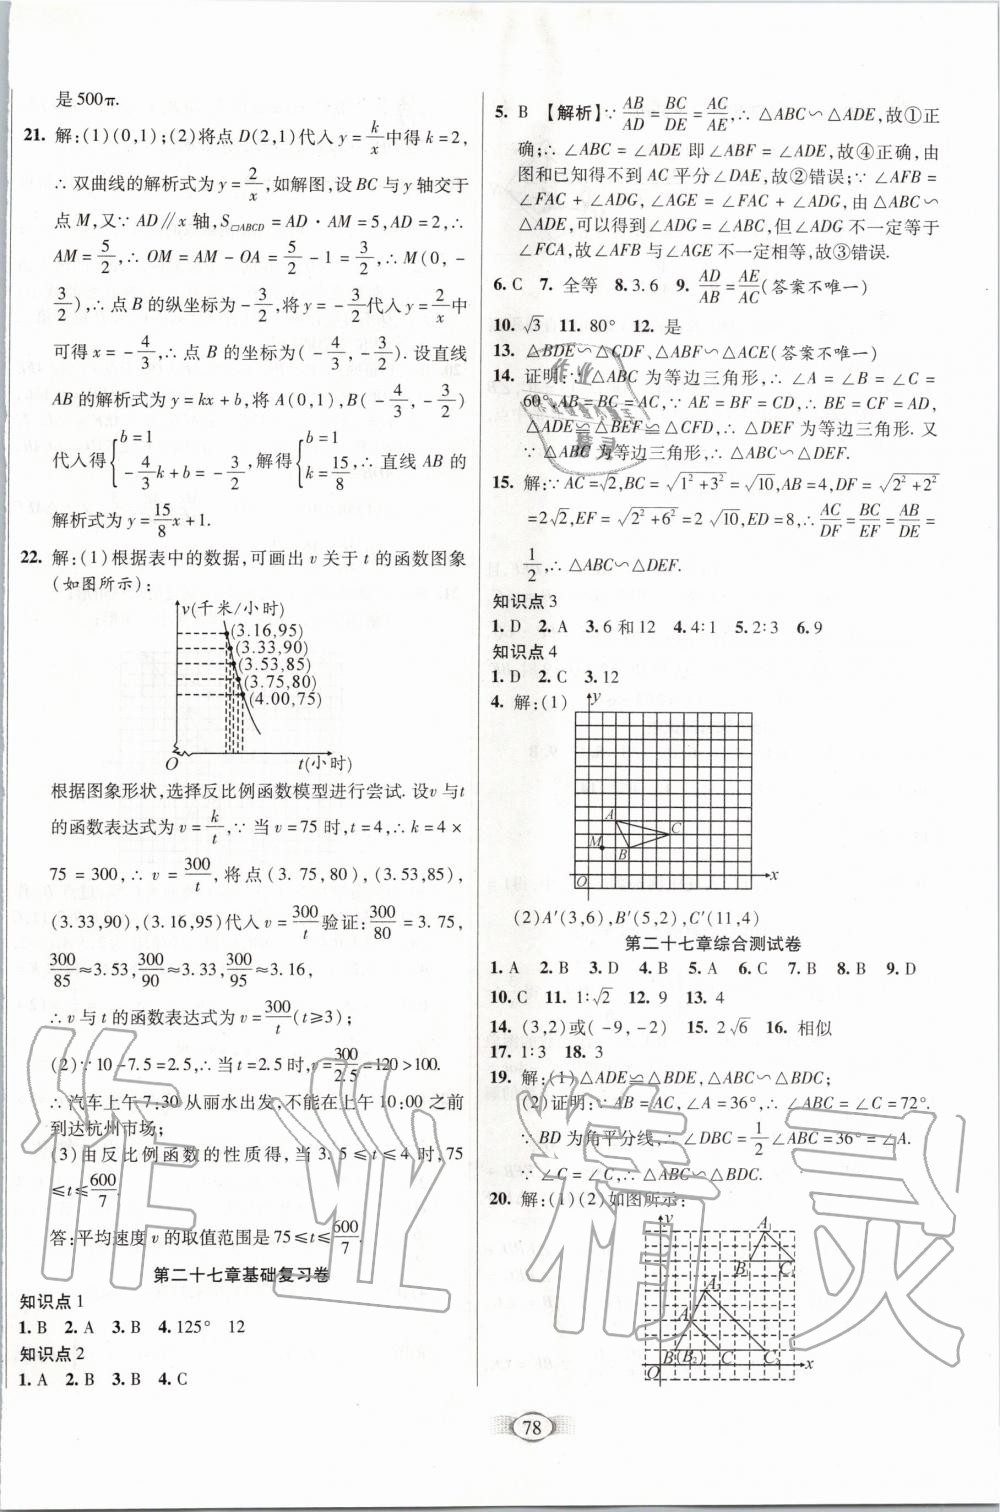 是500π.
21. 解:(1)(0,1);(2)将点D(2,1)代入y=k/x中得k=2,
∴双曲线的解析式为y=2/x,如解图,设BC与y轴交于
点M,又∵AD∥x轴,S▱ABCD=AD·AM=5,AD=2,∴
AM=5/2,∴OM=AM-OA=5/2-1=3/2,∴M(0,-
3/2),∴点B的纵坐标为-3/2,将y=-3/2代入y=2/x中
可得x=-4/3,∴点B的坐标为(-4/3,-3/2). 设直线
AB的解析式为y=kx+b,将A(0,1),B(-4/3,-3/2)
代入得{b=1, -4/3k+b=-3/2,解得{b=1, k=15/8,∴直线AB的
解析式为y=15/8x+1.
22. 解:(1)根据表中的数据,可画出v关于t的函数图象
(如图所示):
v(千米/小时)
(3.16,95)
(3.33,90)
(3.53,85)
(3.75,80)
(4.00,75)
O t(小时)
根据图象形状,选择反比例函数模型进行尝试. 设v与t
的函数表达式为v=k/t,∵当v=75时,t=4,∴k=4×
75=300,∴v=300/t,将点(3.75,80),(3.53,85),
(3.33,90),(3.16,95)代入v=300/t验证:300/80=3.75,
300/85≈3.53,300/90≈3.33,300/95≈3.16,
∴v与t的函数表达式为v=300/t(t≥3);
(2)∵10-7.5=2.5,∴当t=2.5时,v=300/2.5=120>100.
∴汽车上午7:30从丽水出发,不能在上午10:00之前
到达杭州市场;
(3)由反比例函数的性质得,当3.5≤t≤4时,75
≤t≤600/7.
答:平均速度v的取值范围是75≤t≤600/7.
第二十七章基础复习卷
知识点1
1. B 2. A 3. B 4. 125° 12
知识点2
1. A 2. B 3. B 4. C
5. B 【解析】∵AB/AD=BC/DE=AC/AE,∴△ABC∽△ADE,故①正
确;∴∠ABC=∠ADE即∠ABF=∠ADE,故④正确,由
图和已知得不到AC平分∠DAE,故②错误;∵∠AFB=
∠FAC+∠ADG,∠AGE=∠FAC+∠ADG,由△ABC∽
△ADE,可得∠ADG=∠ABC,但∠ADG不一定等于
∠FCA,故∠AFB与∠AGE不一定相等,故③错误.
6. C 7. 全等 8. 3.6 9. AD/AB=AE/AC(答案不唯一)
10. √3 11. 80° 12. 是
13. △BDE∽△CDF、△ABF∽△ACE(答案不唯一)
14. 证明:∵△ABC为等边三角形,∴∠A=∠B=∠C=
60°,AB=BC=AC,∵AE=BF=CD,∴BE=CF=AD,
△ADE≌△BEF≌△CFD,∴△DEF为等边三角形. 又
∵△ABC为等边三角形,∴△ABC∽△DEF.
15. 解:∵AC=√2,BC=√(1²+3²)=√10,AB=4,DF=√(2²+2²)
=2√2,EF=√(2²+6²)=2√10,ED=8,∴AC/DF=BC/EF=AB/DE=
1/2,∴△ABC∽△DEF.
知识点3
1. D 2. A 3. 6和12 4. 4:1 5. 2:3 6. 9
知识点4
1. D 2. C 3. 12
4. 解:(1)
y
A
C
M
B
O x
(2)A′(3,6),B′(5,2),C′(11,4)
第二十七章综合测试卷
1. A 2. B 3. D 4. B 5. A 6. C 7. B 8. B 9. D
10. C 11. 1:√2 12. 9 13. 4
14. (3,2)或(-9,-2) 15. 2√6 16. 相似
17. 1:3 18. 3
19. 解:(1)△ADE≌△BDE,△ABC∽△BDC;
(2)证明:∵AB=AC,∠A=36°,∴∠ABC=∠C=72°.
∵BD为角平分线,∴∠DBC=1/2∠ABC=36°=∠A.
∵∠C=∠C,∴△ABC∽△BDC.
20. 解:(1)(2)如图所示:
y
A₁
B₁ C₁
A₂
A
B(B₂) C C₂
O x
78
作业精灵